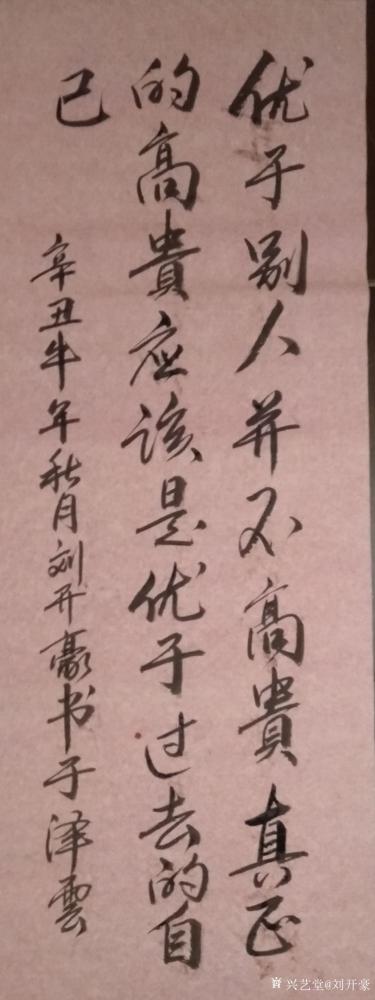 优于别人并不高貴真正
的高貴应该是优于过去的自
己
辛丑牛年秋月刘开豪书于泽雲
兴艺堂@刘开豪